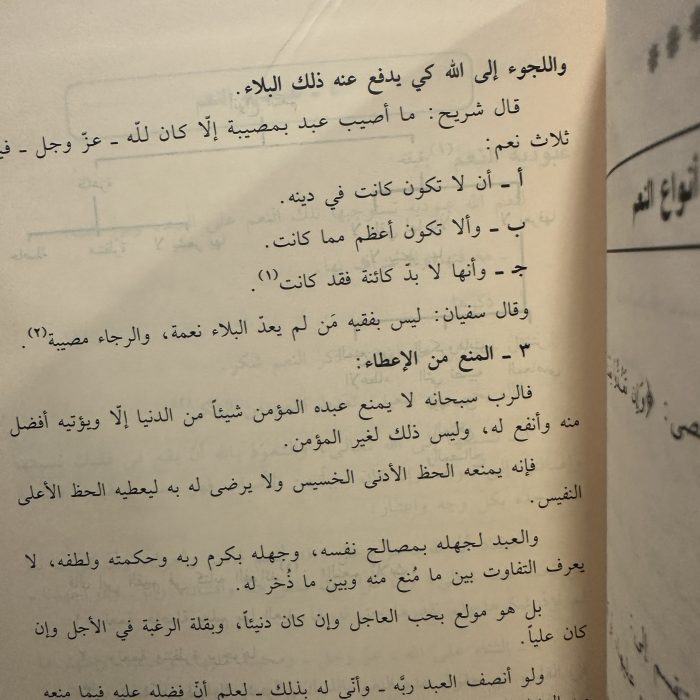 واللجوء إلى الله كي يدفع عنه ذلك البلاء.
قال شريح: ما أصيب عبد بمصيبة إلّا كان للّه ـ عزّ وجل ـ
ثلاث نعم:
أ ـ أن لا تكون كانت في دينه.
ب ـ وألا تكون أعظم مما كانت.
جـ ـ وأنها لا بدّ كائنة فقد كانت(١).
وقال سفيان: ليس بفقيه مَن لم يعدّ البلاء نعمة، والرجاء مصيبة(٢).
٣ ـ المنع من الإعطاء:
فالرب سبحانه لا يمنع عبده المؤمن شيئاً من الدنيا إلّا ويؤتيه أفضل
منه وأنفع له، وليس ذلك لغير المؤمن.
فإنه يمنعه الحظ الأدنى الخسيس ولا يرضى له به ليعطيه الحظ الأعلى
النفيس.
والعبد لجهله بمصالح نفسه، وجهله بكرم ربه وحكمته ولطفه، لا
يعرف التفاوت بين ما مُنع منه وبين ما ذُخر له.
بل هو مولع بحب العاجل وإن كان دنيئاً، وبقلة الرغبة في الآجل وإن
كان علياً.
ولو أنصف العبد ربَّه ـ وأنّى له بذلك ـ لعلم أنّ فضله عليه فيما منعه
*** 
أنواع النعم